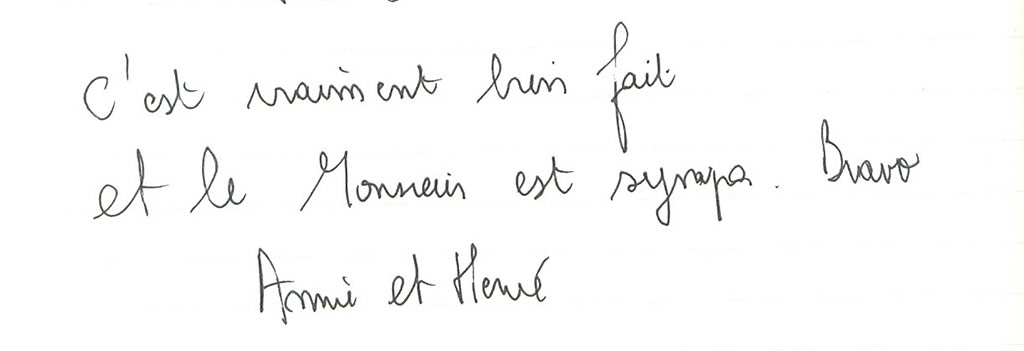 C'est vraiment bien fait
et le Monsieur est sympa. Bravo
Annie et Hervé